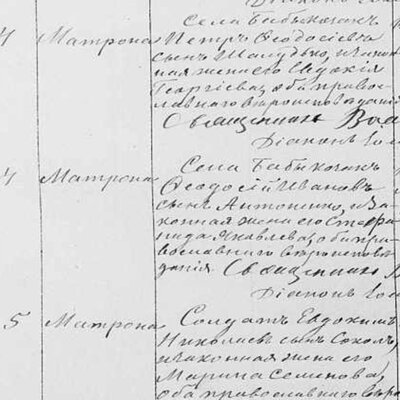 Діаконъ
Села Бабыкочакъ
4 Матрона Петръ Ѳеодосіевъ
сынъ Шалудько, и закон
ная жена его Евдокія
Георгіева, оба право-
славнаго вѣроисповѣданія
Священникъ
Діаконъ
Села Бабыкочакъ
4 Матрона Ѳеодосій Ивановъ
сынъ Антоненко, и за-
конная жена его Сте�ани
нида Яковлева, оба пра-
вославнаго вѣроисповѣ-
данія Священникъ
Діаконъ
5 Матрона Солдатъ Евдокимъ
Николаевъ сынъ Соколъ,
и законная жена его
Марина Семенова,
оба православнаго вѣро